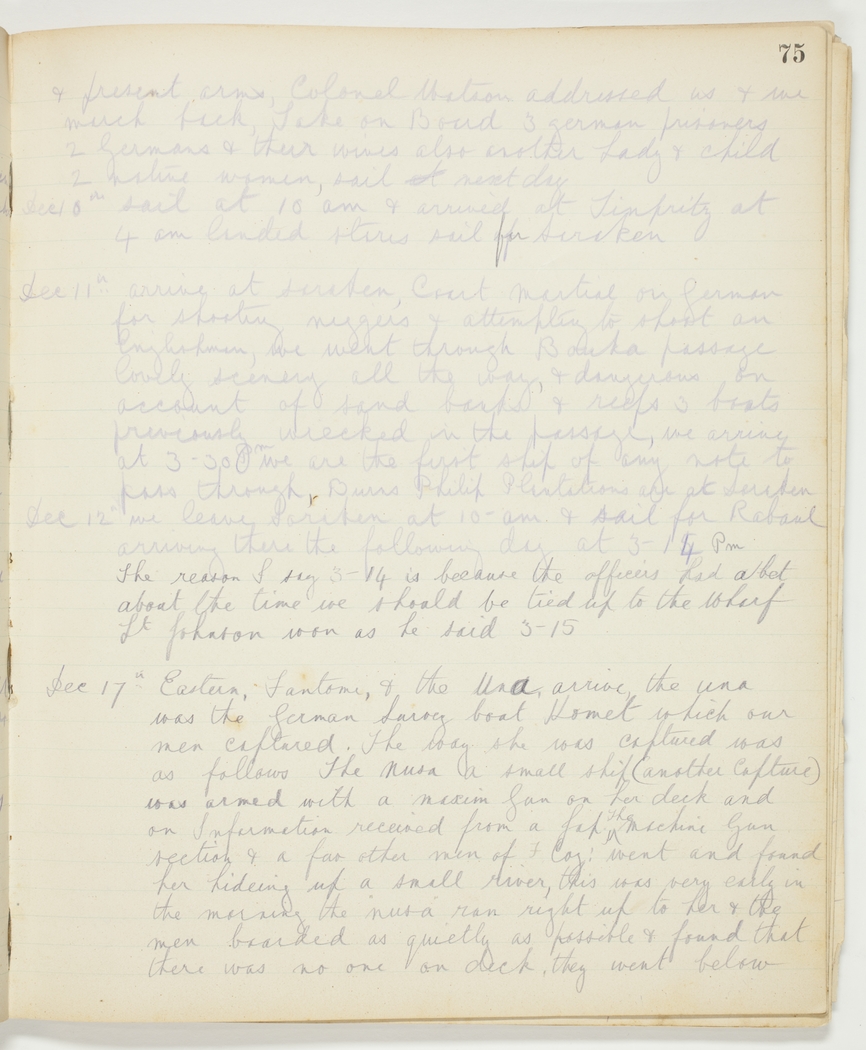 75
& present arms, Colonel Watson addressed us & we
march back, Take on Board 3 german prisoners
2 Germans & their wives also another Lady & child
2 native women, sail next day
Dec 10th sail at 10 am & arrived at Timpritz at
4 am landed stores sail for Soraken
Dec 11th arrive at soraken, Court Martial on German
for shooting niggers & attempting to shoot an
Englishman, we went through Bouka passage
lovely scenery all the way, & dangerous on
account of sand banks & reefs 3 boats
previously wrecked in the passage, we arrive
at 3-30 Pm we are the first ship of any note to
pass through, Burns Philip Plantations are at Soraken
Dec 12th we leave Soraken at 10-am & sail for Rabaul
arriving there the following day at 3-14 Pm
The reason I say 3-14 is because the officers had a bet
about the time we should be tied up to the wharf
Lt Johnson won as he said 3-15
Dec 17th Eastern, Fantome, & the Una, arrive, the una
was the German Survey boat Komet which our
men captured. The way she was captured was
as follows The Nusa a small ship (another Capture)
was armed with a maxim Gun on her deck and
on Information received from a Jap the Machine Gun
section & a few other men of F Coy: went and found
her hideing up a small river, this was very early in
the morning the nusa ran right up to her & the
men boarded as quietly as possible & found that
there was no one on deck, they went below